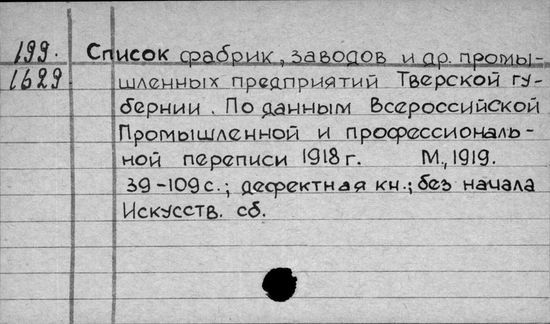 199. Список фабрик, заводов и др. промы-
1629 шленных предприятий Тверской гу-
бернии. По данным Всероссийской
Промышленной и профессиональ-
ной переписи 1918 г. М., 1919.
39-109 с.; дефектная кн.; без начала
Искусств. сб.